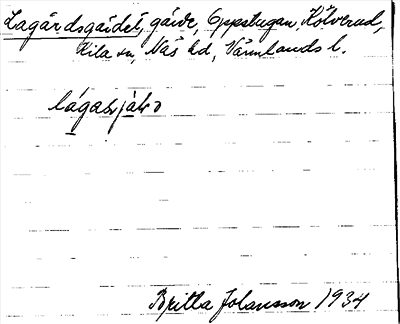 Lagårdsgärdet, gärde, Uppstugan, Kölverud,
Kila sn, Näs hd, Värmlands l.
Britta Johansson 1934